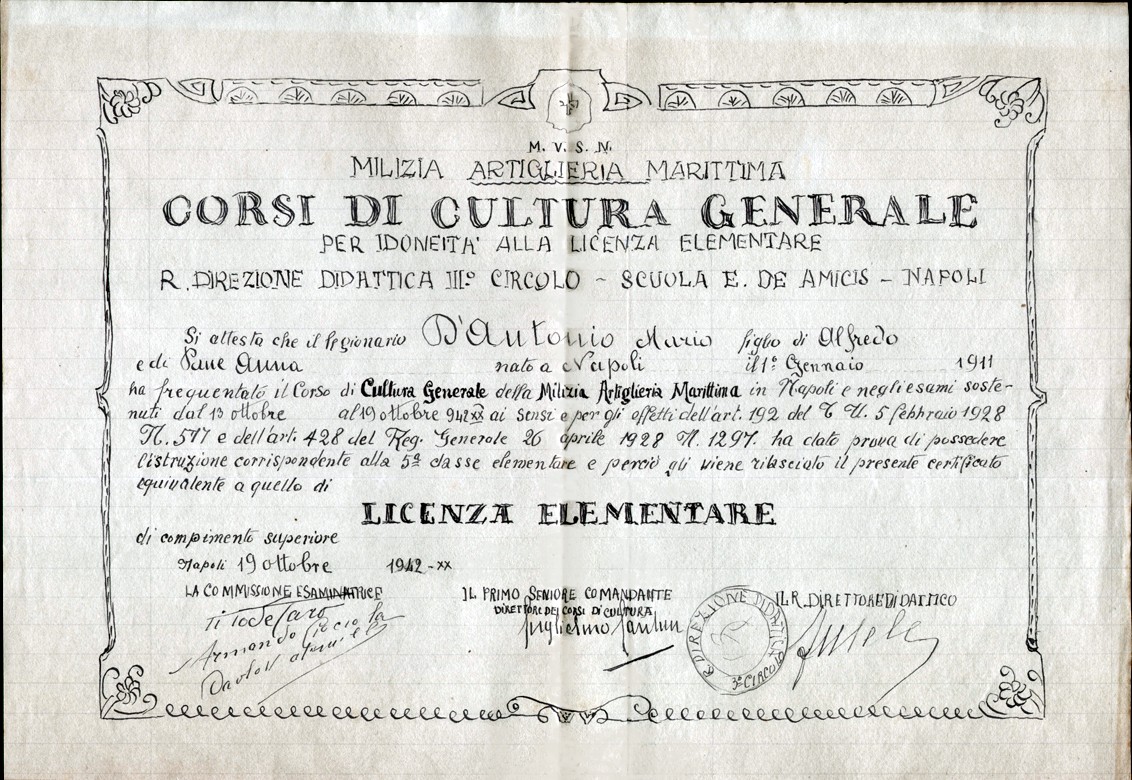 M. V. S. N.
MILIZIA ARTIGLIERIA MARITTIMA
CORSI DI CULTURA GENERALE
PER IDONEITA' ALLA LICENZA ELEMENTARE
R. DIREZIONE DIDATTICA III° CIRCOLO - SCUOLA E. DE AMICIS - NAPOLI
Si attesta che il legionario D'Antonio Mario figlio di Alfredo
e di Pane Anna nato a Napoli il 1° Gennaio 1911
ha frequentato il Corso di Cultura Generale della Milizia Artiglieria Marittima in Napoli e negli esami soste-
nuti dal 13 ottobre al 19 ottobre 942 XX ai sensi e per gli effetti dell'art. 192 del T. U. 5 febbraio 1928
N. 577 e dell'art. 428 del Reg. Generale 26 aprile 1928 N. 1297. ha dato prova di possedere
l'istruzione corrispondente alla 5ª classe elementare e perciò gli viene rilasciato il presente certificato
equivalente a quello di
LICENZA ELEMENTARE
di compimento superiore
Napoli 19 ottobre 1942-XX
LA COMMISSIONE ESAMINATRICE
Armando
IL PRIMO SENIORE COMANDANTE
DIRETTORE DEI CORSI DI CULTURA
Guglielmo
IL R. DIRETTORE DIDATTICO
R. DIREZIONE DIDATTICA
3° CIRCOLO